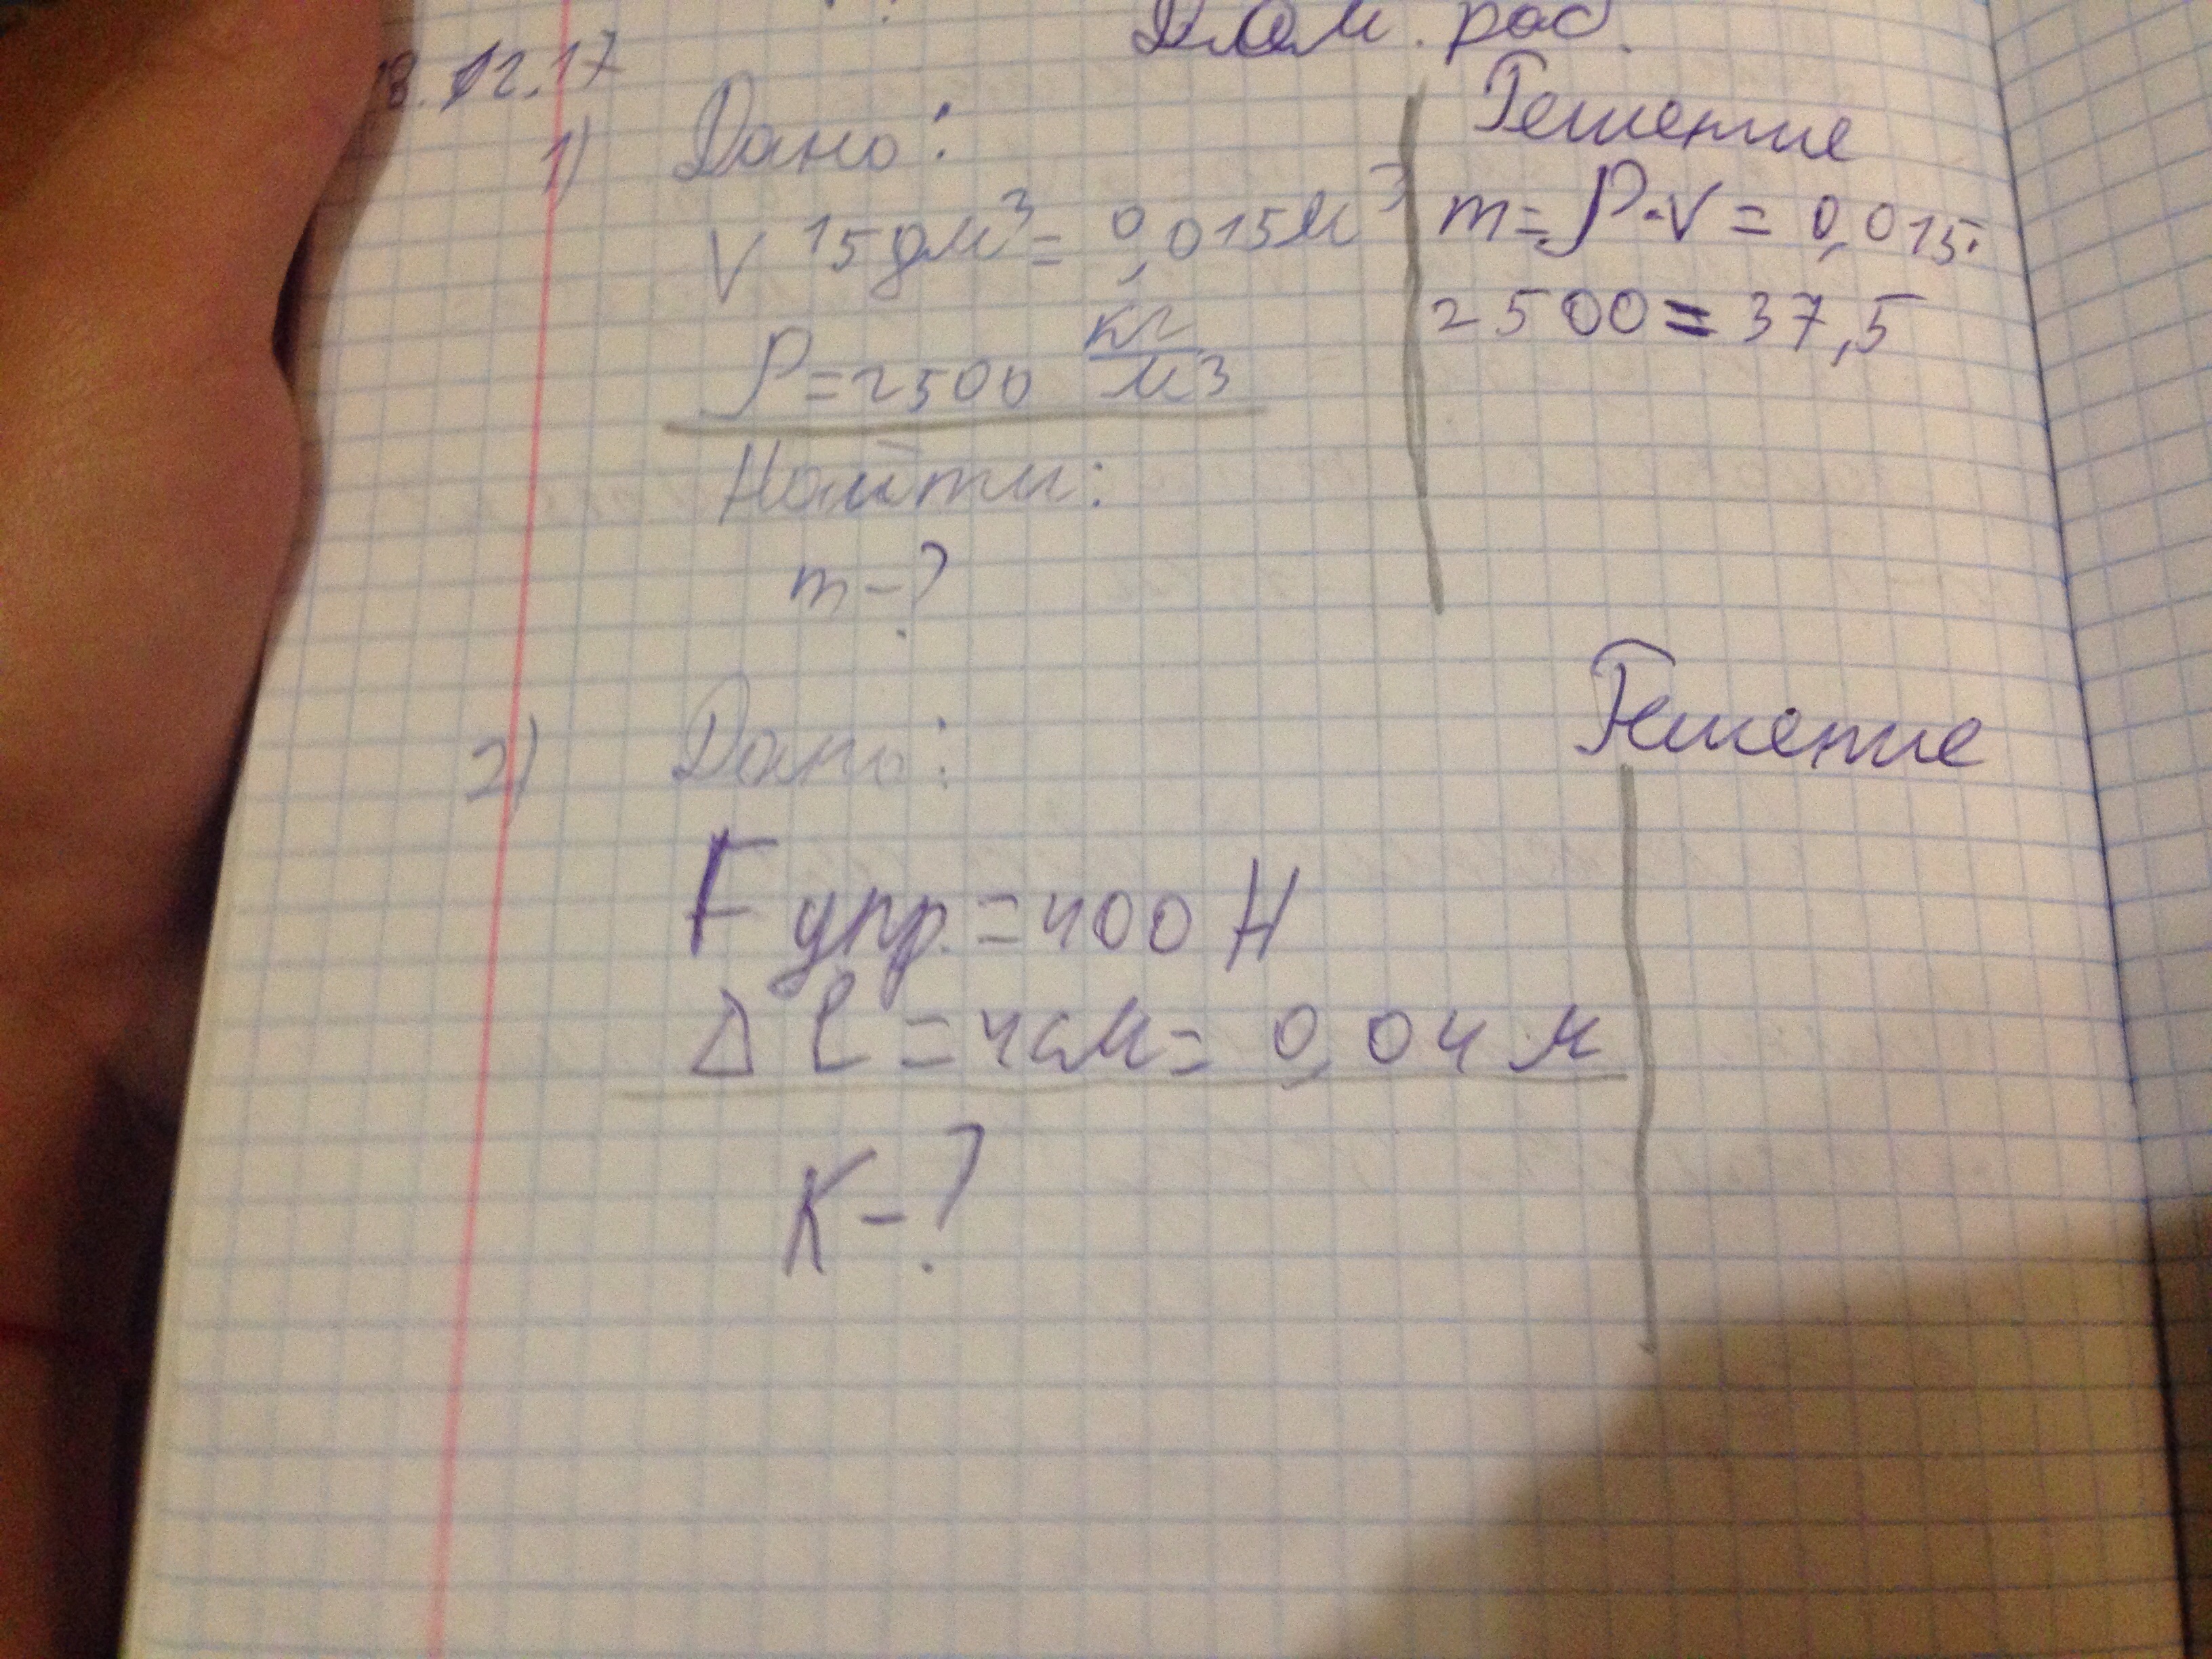 Дом. раб.
8.12.17
1) Дано:
V 15дм³ = 0,015м³
ρ = 2500 кг/м3
Найти:
m - ?
Решение
m = ρ · V = 0,015 ·
2500 = 37,5
2) Дано:
F упр. = 400 Н
Δ l = 4 см = 0,04 м
K - ?
Решение